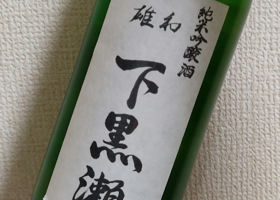 純米吟醸酒
雄和
下黒瀬